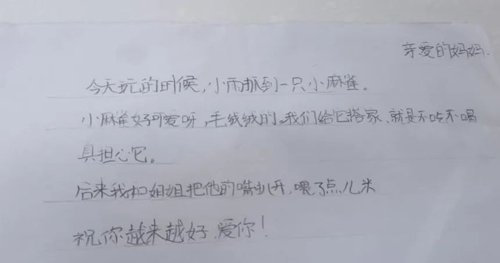 亲爱的妈妈:
今天玩的时候,小雨抓到一只小麻雀。
小麻雀好可爱呀,毛绒绒的。我们给它搭家,就是不吃不喝
真担心它。
后来我和姐姐把他的嘴扒开,喂了点儿米
祝你越来越好.爱你!